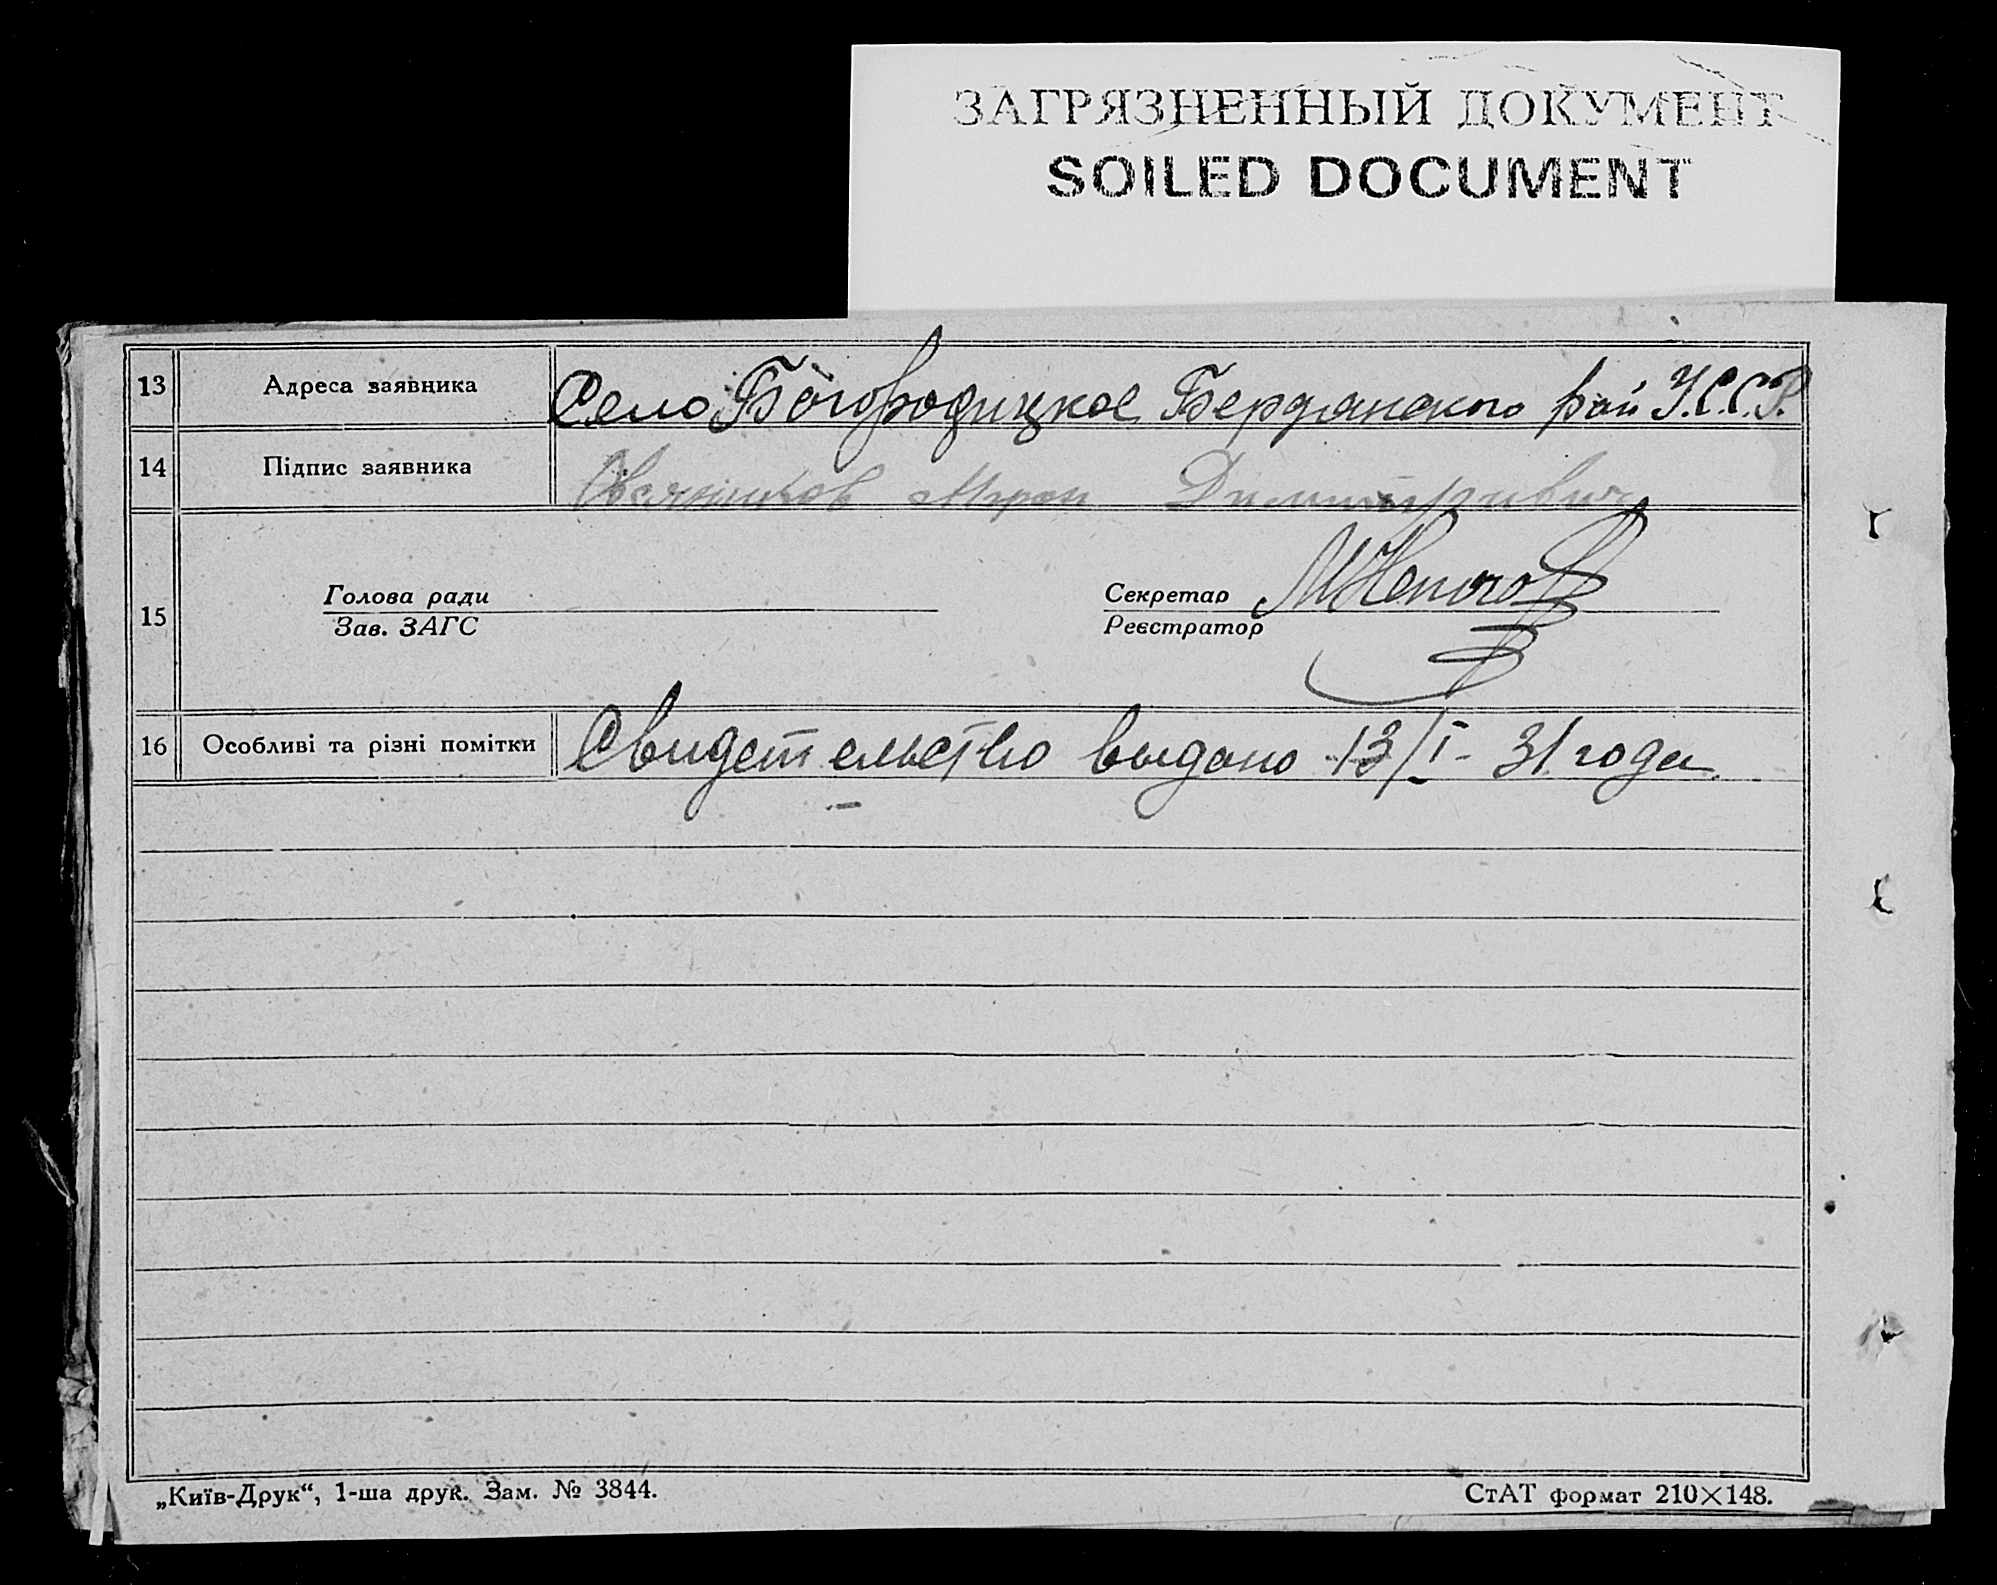 ЗАГРЯЗНЕННЫЙ ДОКУМЕНТ
SOILED DOCUMENT
13 Адреса заявника Село Богородицкое Бердянского рай У.С.С.Р.
14 Підпис заявника Мирон Димитриевич
15 Голова ради Секретар
Зав. ЗАГС Реєстратор
16 Особливі та різні помітки Свидетельство выдано 13/I - 31 года
„Київ-Друк“, 1-ша друк. Зам. № 3844. СтАТ формат 210×148.